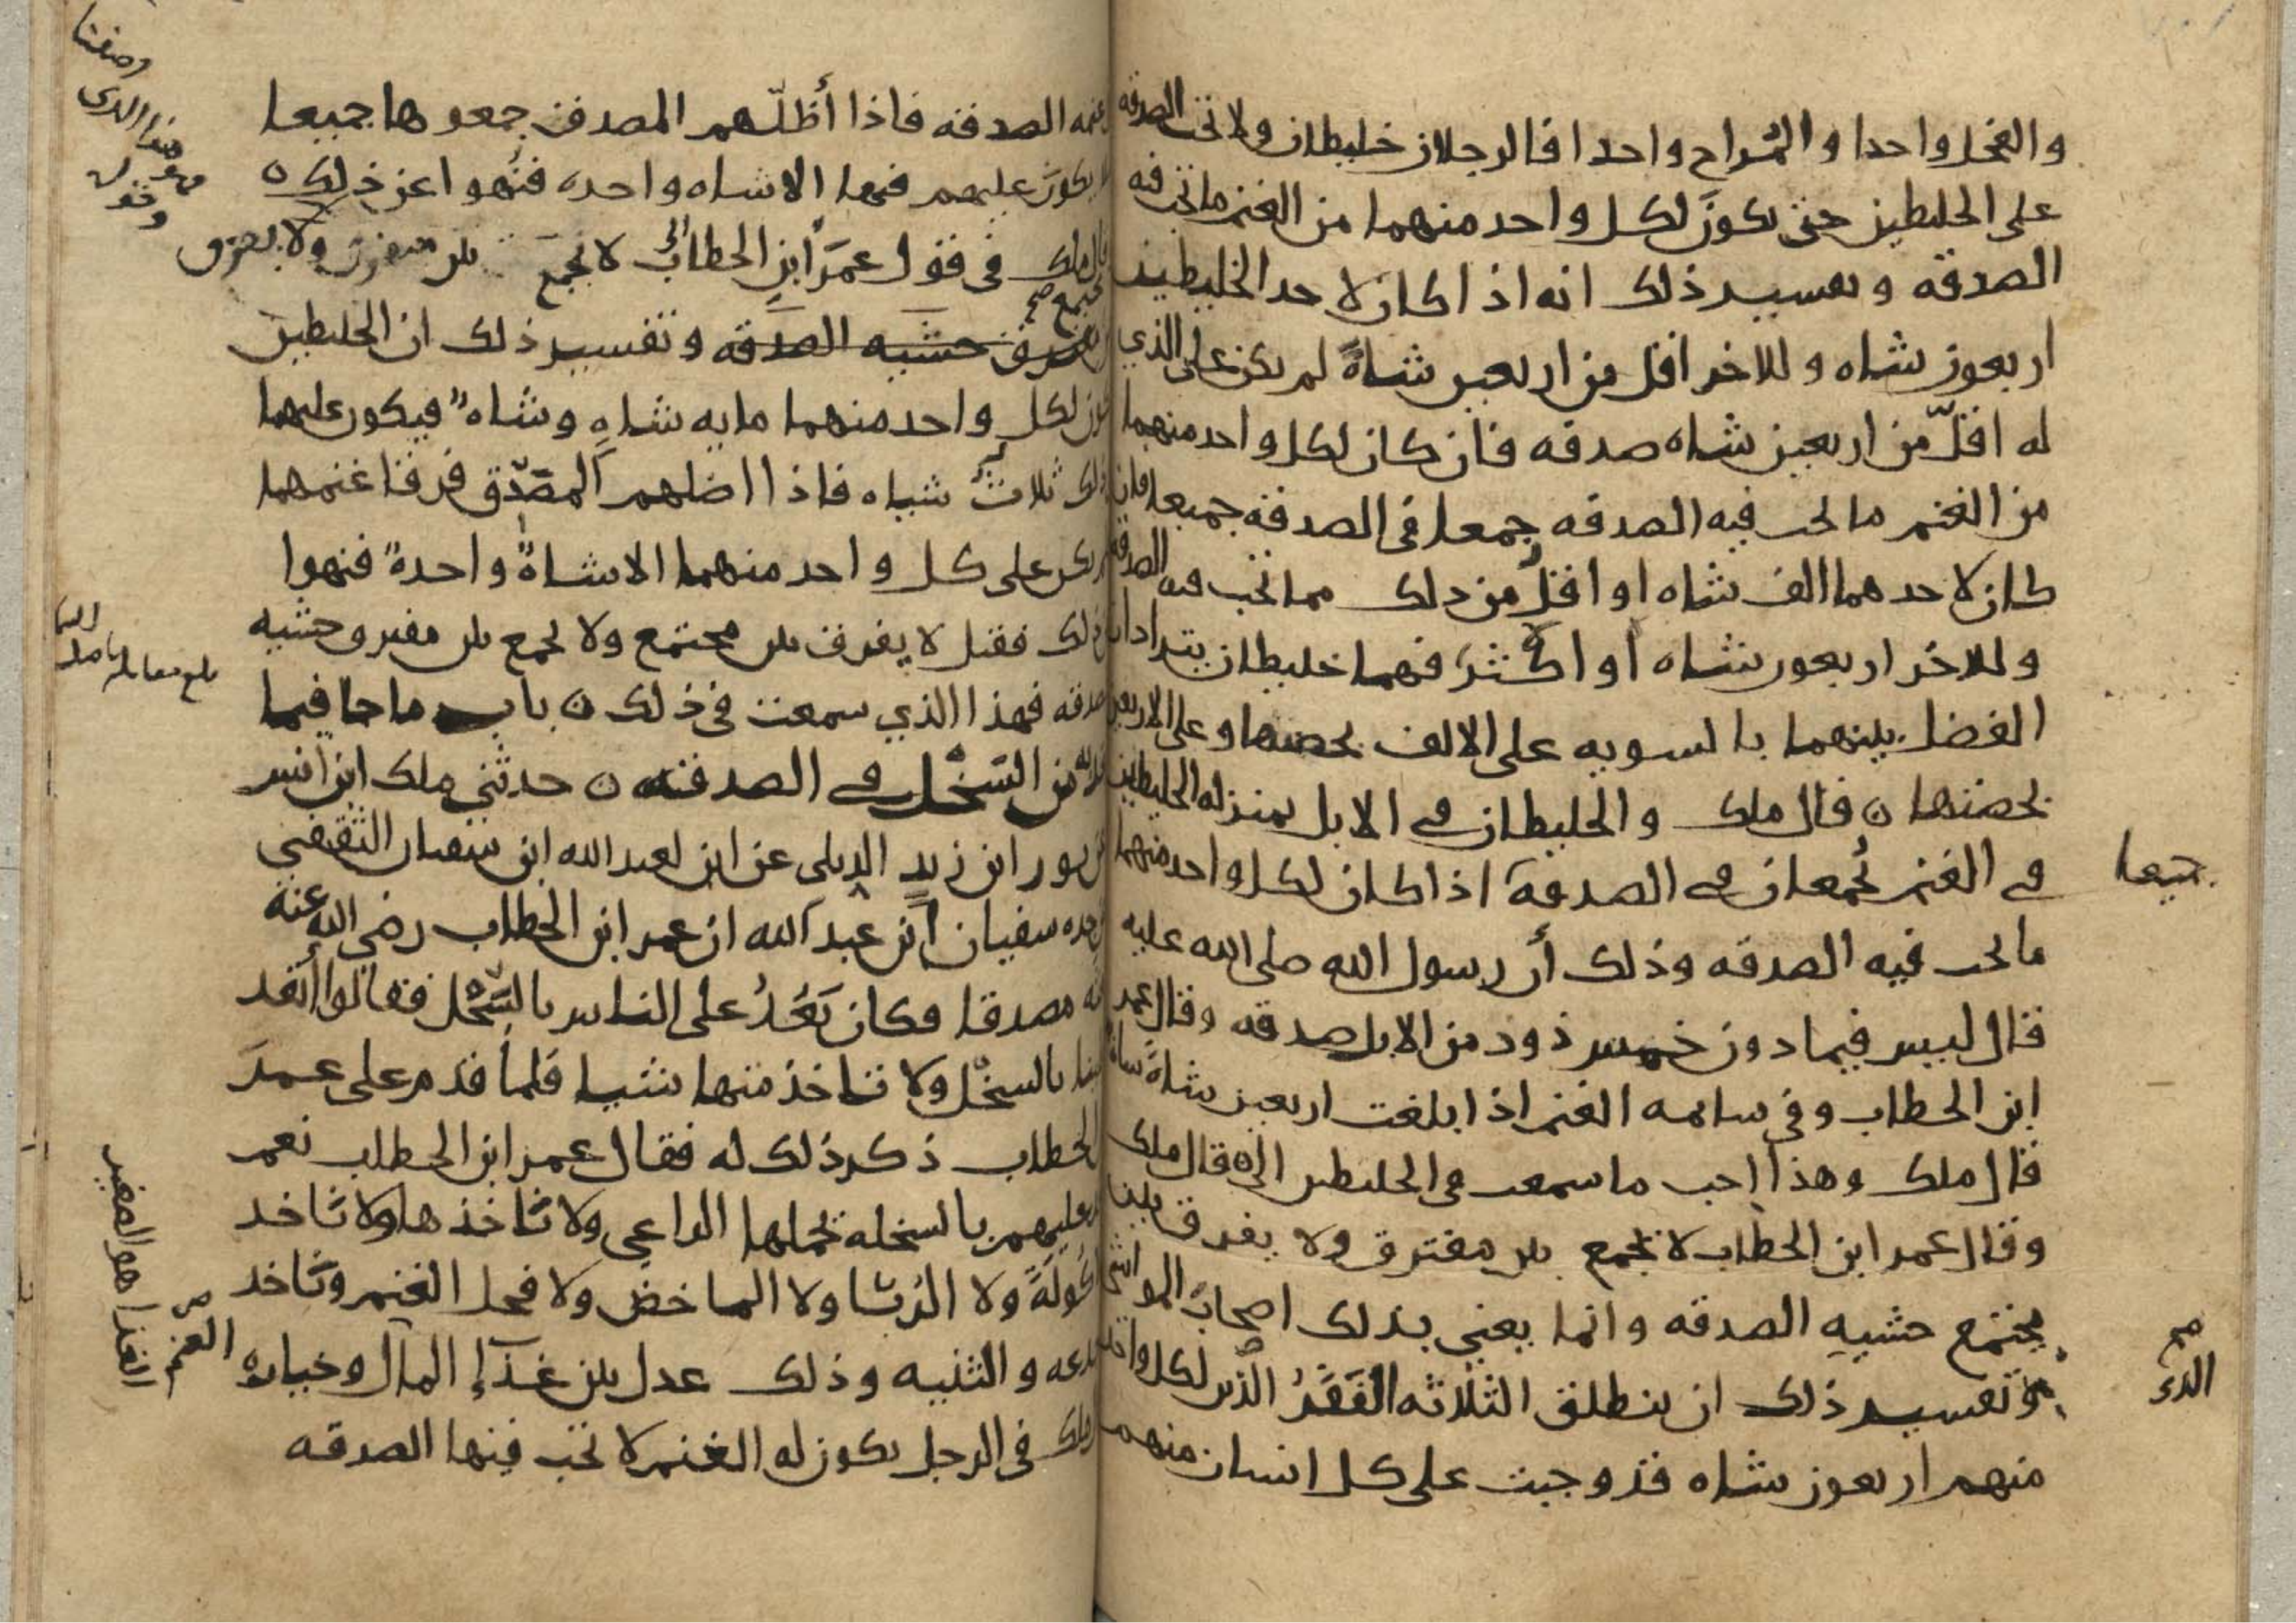 والفحل واحدا والمُراح واحدا فالرجلان خليطان ولا تجب الصدقه
على الخليطين حتى يكونَ لكل واحد منهما من الغنم ما تجب فيه
الصدقه وتفسير ذلك انه اذا كان لاحد الخليطين
اربعون شاه وللاخر اقل من اربعين شاةً لم يكن على الذي
له اقلّ من اربعين شاه صدقه فان كان لكل واحد منهما
من الغنم ما تجب فيه الصدقه جمعا في الصدقة جميعا فان
كان لاحدهما الف شاه او اقلُ من ذلك مما تجب فيه الصدقه
وللاخر اربعون شاه أو اكثر فهما خليطان يترادان
الفضل بينهما بالسويه على الالف بحصتها وعلى الاربعين
بحصتها ن قال ملك والخليطان في الابل بمنزله الخليطين
في الغنم يُجمعان في الصدقة اذا كان لكل واحد منهما
جميعا
ما تجب فيه الصدقه وذلك أن رسول الله صلى الله عليه
قال ليس فيما دون خمس ذود من الابل صدقه وقال عمر
ابن الخطاب وفي سايمه الغنم اذا بلغت اربعين شاةً شاة
قال ملك وهذا احب ما سمعت في الخليطين الى ه قال ملك
وقال عمر ابن الخطاب لا يجمع بين مفترق ولا يفرق بين
مجتمع خشيه الصدقه وانما يعني بذلك اصحابَ المواشي
وتفسير ذلك ان ينطلق الثلاثه النَفَرُ الذين لكل واحد
صح
الذي
منهم اربعون شاه قد وجبت على كل انسان منهم
غنمه الصدقه فاذا أظلّهم المصدق جمعوها جميعا
لا يكونَ عليهم فيها الا شاه واحده فنُهوا عن ذلك ن
قال ملك في قول عمرَ ابنِ الخطاب لا يجمع بين مفترق ولا يفرق
مجتمع صح
خشيه الصدقه وتفسير ذلك ان الخليطين
يكون لكل واحد منهما مايه شاهٍ وشاه فيكون عليهما
ذلك ثلاثُ شياه فاذا اضلهم المصَدّق فرقا غنمهما
يكن على كل واحد منهما الا شاةٌ واحدةٌ فنهوا
عن ذلك فقيل لا يفرق بين مجتمع ولا يجمع بين مفترق خشيه
الصدقه فهذا الذي سمعت في ذلك ن باب ما جا فيما
من السَخْل في الصدقه ن حدثني ملك ابن انس
عن ثور ابن زيدٍ الديلى عن ابن لعبد الله ابن سفيان الثقفي
عن جده سفيان ابن عبد الله ان عمر ابن الخطاب رضي الله عنه
بعثه مصدقا فكان يَعُدُّ على الناس بالسَّخْل فقالوا أتعد
علينا بالسخْل ولا تاخذ منها شيا فلما قدم على عمرَ
الخطاب ذكر ذلك له فقال عمر ابن الخطاب نعم
نعد عليهم بالسخله يحملها الراعي ولا تاخذها ولا تاخذ
الاكُولَةَ ولا الرُبّا ولا الماخضَ ولا فحل الغنم وتاخذ
الجذعه والثنيه وذلك عدل بين غذاءِ المال وخياره
ملك في الرجل يكون له الغنم لا تجب فيها الصدقه
هذا الذي
الغذا هو الصغير
من الغنم